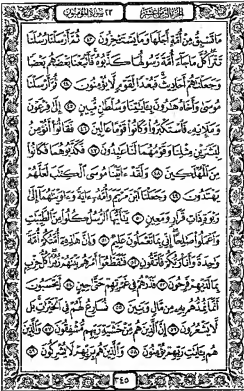 الجزء الثامن عشر ٢٣ سورة المؤمنون
مَا تَسْبِقُ مِنْ أُمَّةٍ أَجَلَهَا وَمَا يَسْتَـْٔخِرُونَ ٤٣ ثُمَّ أَرْسَلْنَا رُسُلَنَا
تَتْرَا كُلَّ مَا جَآءَ أُمَّةً رَّسُولُهَا كَذَّبُوهُ فَأَتْبَعْنَا بَعْضَهُم بَعْضًا
وَجَعَلْنَٰهُمْ أَحَادِيثَ فَبُعْدًا لِّقَوْمٍ لَّا يُؤْمِنُونَ ٤٤ ثُمَّ أَرْسَلْنَا
مُوسَىٰ وَأَخَاهُ هَٰرُونَ بِـَٔايَٰتِنَا وَسُلْطَٰنٍ مُّبِينٍ ٤٥ إِلَىٰ فِرْعَوْنَ
وَمَلَإِي۟هِ فَٱسْتَكْبَرُوا۟ وَكَانُوا۟ قَوْمًا عَالِينَ ٤٦ فَقَالُوٓا۟ أَنُؤْمِنُ
لِبَشَرَيْنِ مِثْلِنَا وَقَوْمُهُمَا لَنَا عَٰبِدُونَ ٤٧ فَكَذَّبُوهُمَا فَكَانُوا۟
مِنَ ٱلْمُهْلَكِينَ ٤٨ وَلَقَدْ ءَاتَيْنَا مُوسَى ٱلْكِتَٰبَ لَعَلَّهُمْ
يَهْتَدُونَ ٤٩ وَجَعَلْنَا ٱبْنَ مَرْيَمَ وَأُمَّهُۥٓ ءَايَةً وَءَاوَيْنَٰهُمَآ إِلَىٰ
رَبْوَةٍ ذَاتِ قَرَارٍ وَمَعِينٍ ٥٠ يَٰٓأَيُّهَا ٱلرُّسُلُ كُلُوا۟ مِنَ ٱلطَّيِّبَٰتِ
وَٱعْمَلُوا۟ صَٰلِحًا إِنِّى بِمَا تَعْمَلُونَ عَلِيمٌ ٥١ وَإِنَّ هَٰذِهِۦٓ أُمَّتُكُمْ أُمَّةً
وَٰحِدَةً وَأَنَا۠ رَبُّكُمْ فَٱتَّقُونِ ٥٢ فَتَقَطَّعُوٓا۟ أَمْرَهُم بَيْنَهُمْ زُبُرًا كُلُّ حِزْبٍۭ
بِمَا لَدَيْهِمْ فَرِحُونَ ٥٣ فَذَرْهُمْ فِى غَمْرَتِهِمْ حَتَّىٰ حِينٍ ٥٤ أَيَحْسَبُونَ
أَنَّمَا نُمِدُّهُم بِهِۦ مِن مَّالٍ وَبَنِينَ ٥٥ نُسَارِعُ لَهُمْ فِى ٱلْخَيْرَٰتِ بَل
لَّا يَشْعُرُونَ ٥٦ إِنَّ ٱلَّذِينَ هُم مِّنْ خَشْيَةِ رَبِّهِم مُّشْفِقُونَ ٥٧ وَٱلَّذِينَ
هُم بِـَٔايَٰتِ رَبِّهِمْ يُؤْمِنُونَ ٥٨ وَٱلَّذِينَ هُم بِرَبِّهِمْ لَا يُشْرِكُونَ ٥٩
٣٤٥